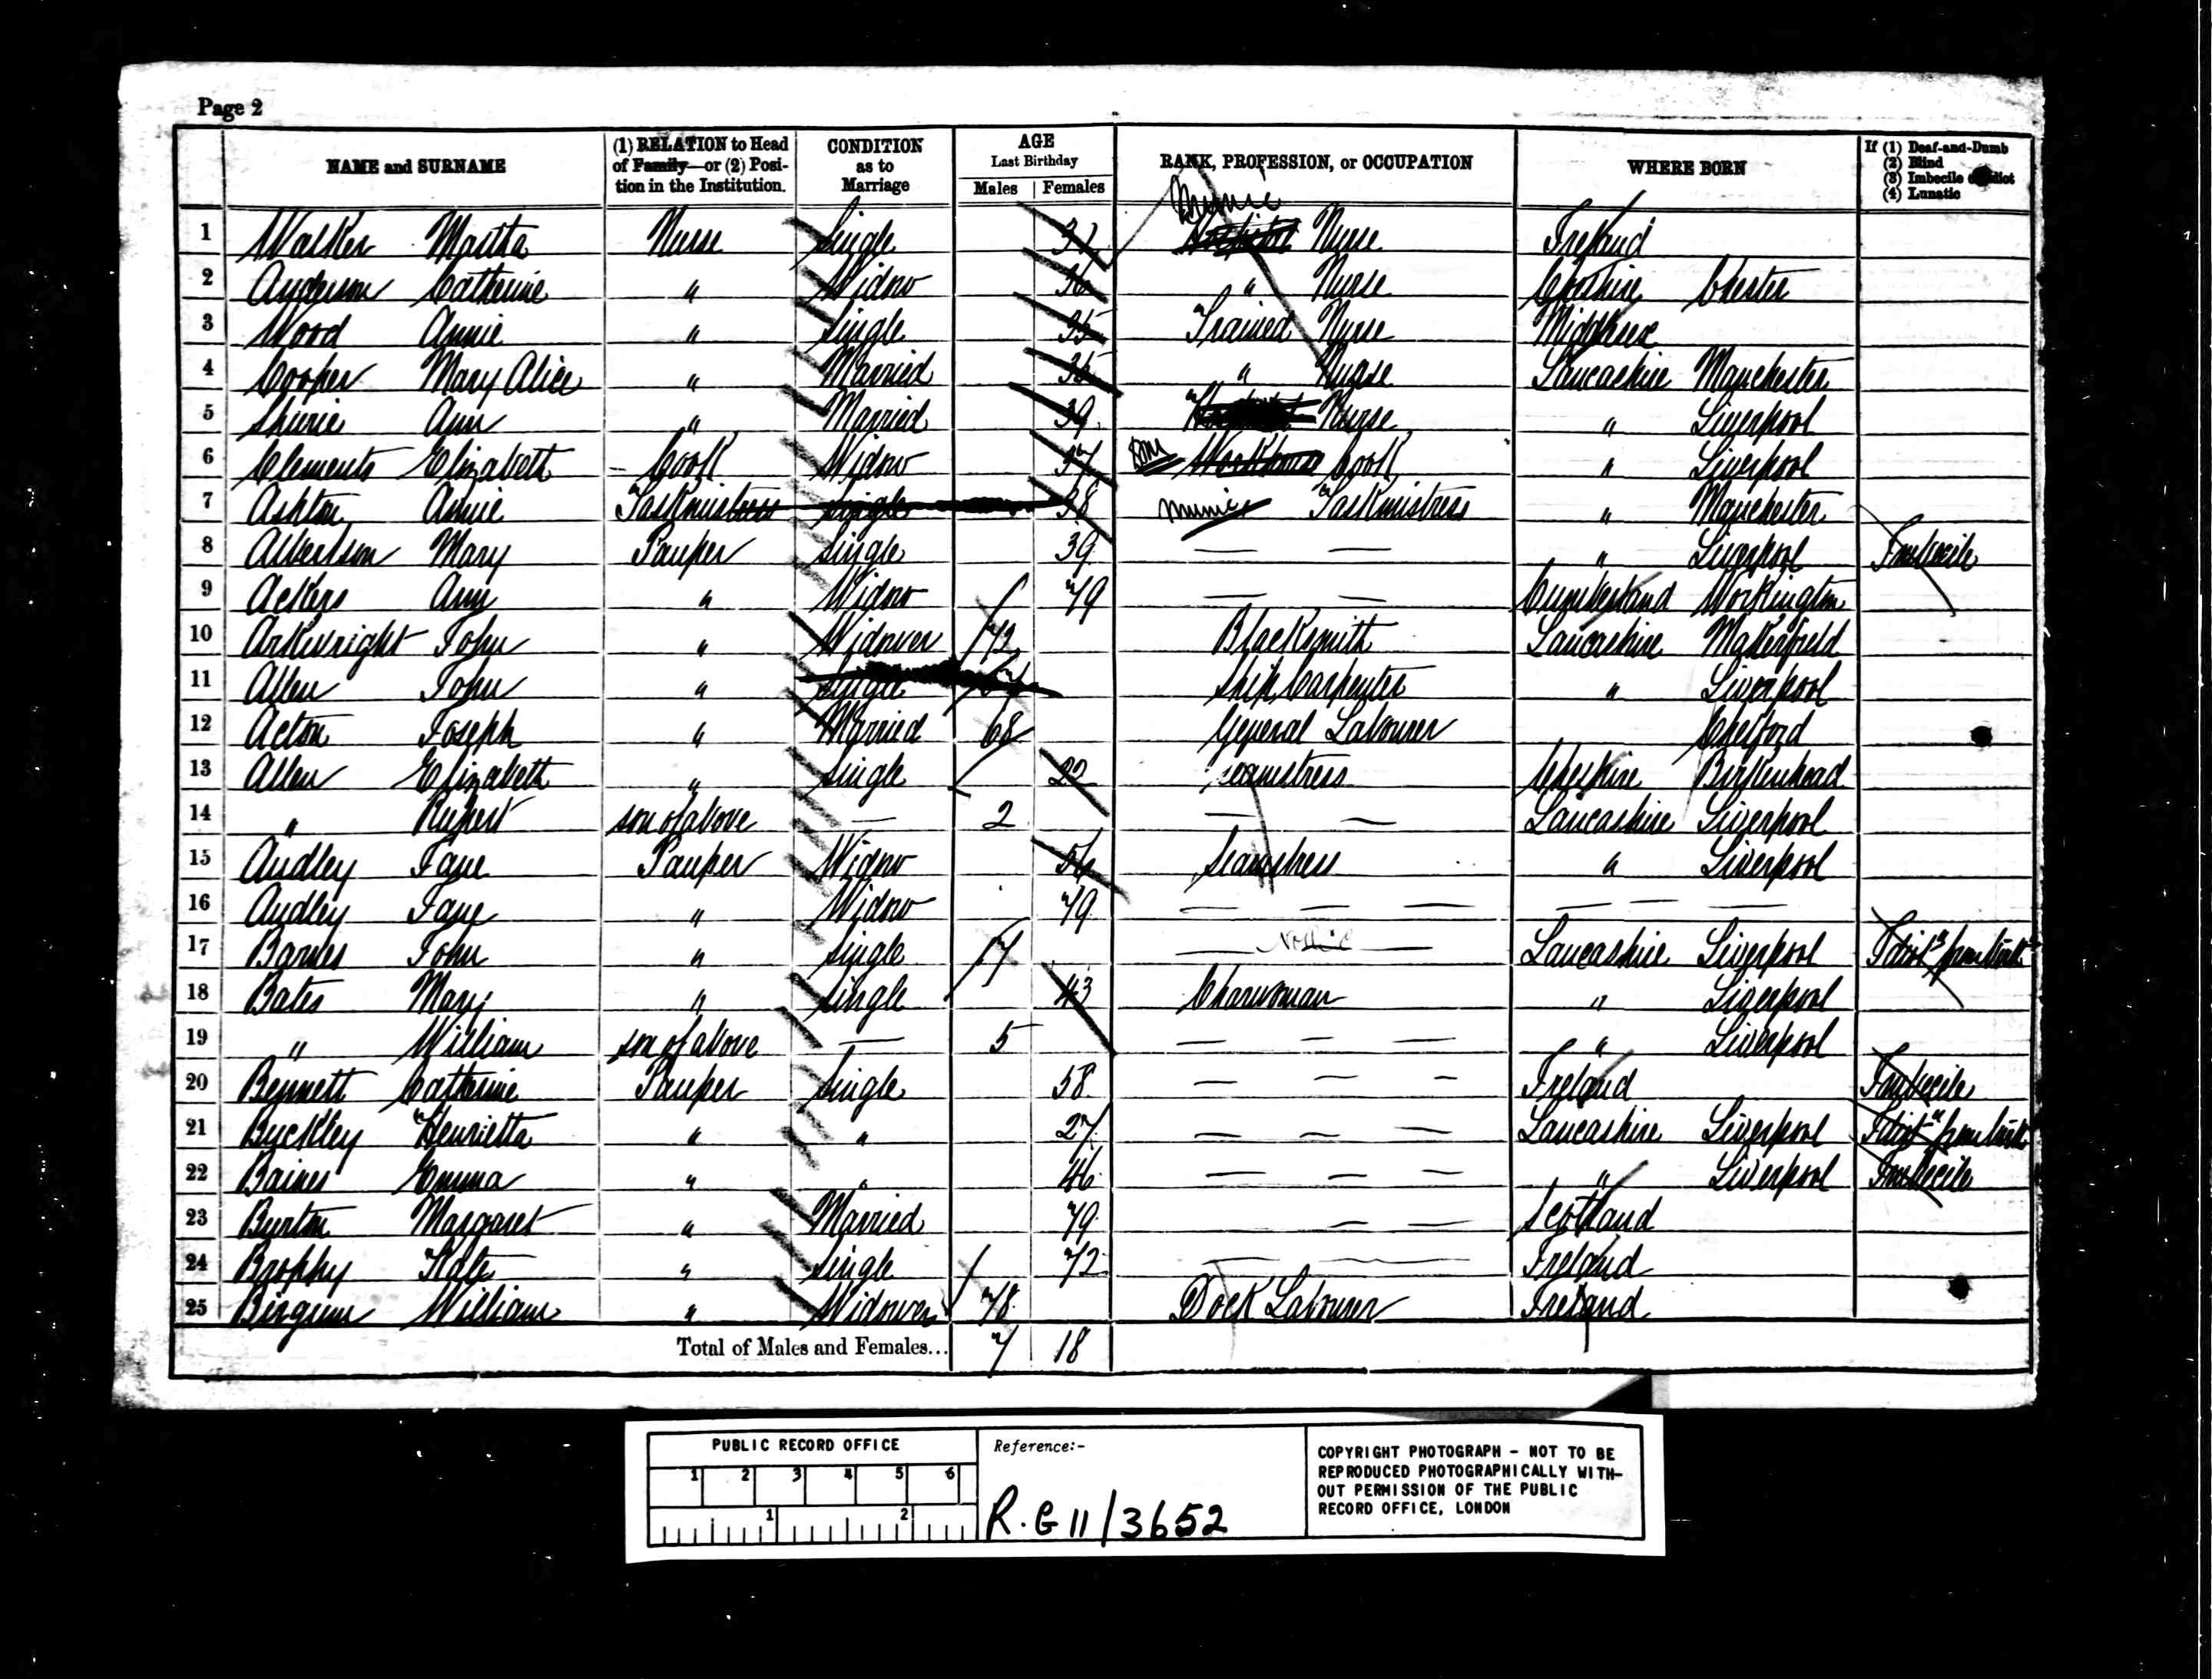 Page 2
NAME and SURNAME (1) RELATION to Head of Family—or (2) Position in the Institution. CONDITION as to Marriage AGE Last Birthday Males Females RANK, PROFESSION, or OCCUPATION WHERE BORN If (1) Deaf-and-Dumb (2) Blind (3) Imbecile or Idiot (4) Lunatic
Munic
1 Walker Martha Nurse Single Nurse Ireland
2 Anderson Catherine " Widow 36 " Nurse Cheshire Chester
3 Wood Annie " Single 35 Trained Nurse Middlesex
4 Cooper Mary Alice " Married 35 " Nurse Lancashire Manchester
5 Ann " Married 39 Nurse " Liverpool
6 Clements Elizabeth Cook Widow 37 Dom Workhouse Cook " Liverpool
7 Ashton Annie Taskmistress Single 38 Munic Taskmistress " Manchester
8 Albertson Mary Pauper Single 39 — — " Liverpool Imbecile
9 Ackers Ann " Widow 79 — — Cumberland Workington
10 Arkwright John " Widower 72 Blacksmith Lancashire Makerfield
11 Allen John " Single Ship Carpenter " Liverpool
12 Acton Joseph " Married 68 General Labourer Chelford
13 Allen Elizabeth " Single 22 Seamstress Cheshire Birkenhead
14 " Rupert son of above — 2 — — Lancashire Liverpool
15 Audley Jane Pauper Widow 56 Seamstress " Liverpool
16 Audley Jane " Widow 79 — — — — — —
17 Barnes John " Single 17 — — Lancashire Liverpool Idiot from birth
18 Bates Mary " Single 43 Charwoman " Liverpool
19 " William son of above — 5 — — — " Liverpool
20 Bennett Catherine Pauper Single 58 — — — Ireland Imbecile
21 Buckley Henrietta " " 27 — — — Lancashire Liverpool Idiot from birth
22 Baines Emma " " 46 — — — " Liverpool Imbecile
23 Burton Margaret " Married 79 — — — Scotland
24 Brophy Kate " Single 72 — — Ireland
25 William " Widower 78 Dock Labourer Ireland
Total of Males and Females... 7 18
PUBLIC RECORD OFFICE
1 2 3 4 5 6
1 2
Reference:-
R.G 11/3652
COPYRIGHT PHOTOGRAPH - NOT TO BE
REPRODUCED PHOTOGRAPHICALLY WITH-
OUT PERMISSION OF THE PUBLIC
RECORD OFFICE, LONDON